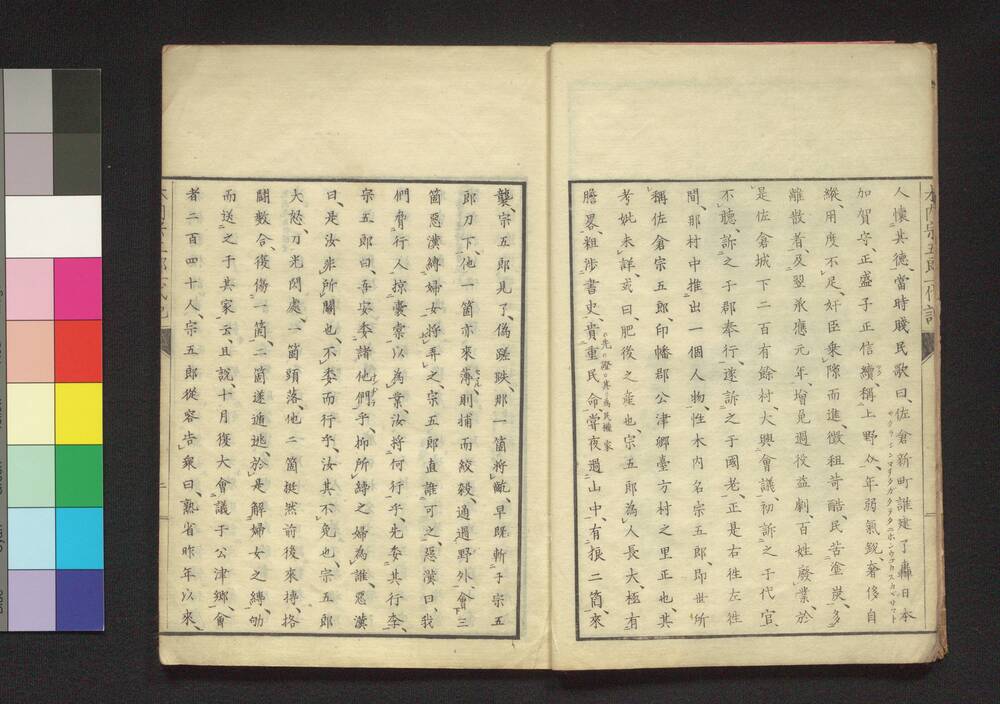 人懷其德、當時賤民歌曰、佐倉新町誰建了、轟日本
加賀守、正盛子正信續、稱上野介、年弱氣銳、奢侈自
縱、用度不足、奸臣乘隙而進、徵租苛酷、民苦塗炭、多
離散者、及翌承應元年、增免過役益劇、百姓廢業、於
是佐倉城下二百有餘村、大興會議、初訴之于代官、
不聽、訴之于郡奉行、遂訴之于國老、正是右徃左徃
間、那村中推出一個人物、性木內名宗五郎、即世所
稱佐倉宗五郎、印幡郡公津鄉臺方村之里正也、其
考妣未詳、或曰、肥後之產也、宗五郎為人長大極有
膽畧、粗涉書史、貴重民命、嘗夜過山中、有狼二箇、來
襲、宗五郎見了、偽蹉跌、那一箇將齕、早既斬于宗五
郎刀下、他一箇亦來薄、則捕而絞殺、通過野外、會下三
箇惡漢縛婦女將弄之、宗五郎直誰可之、惡漢曰、我
們脅行人掠囊橐以為業、汝將何行乎、先委其行李、
宗五郎曰、吾安委諸他們乎、抑所縛之婦為誰、惡漢
曰、是汝非所關也、不委而行乎、汝其不免也、宗五郎
大怒、刀光閃處、一箇頭落、他二箇挺然前後來搏、挌
鬪數合、復傷一箇、二箇遂遁逃、於是解婦女之縛、劬
而送之于其家云、且說、十月復大會議于公津鄉、會
者二百四十人、宗五郎從容告衆曰、熟省昨年以來、